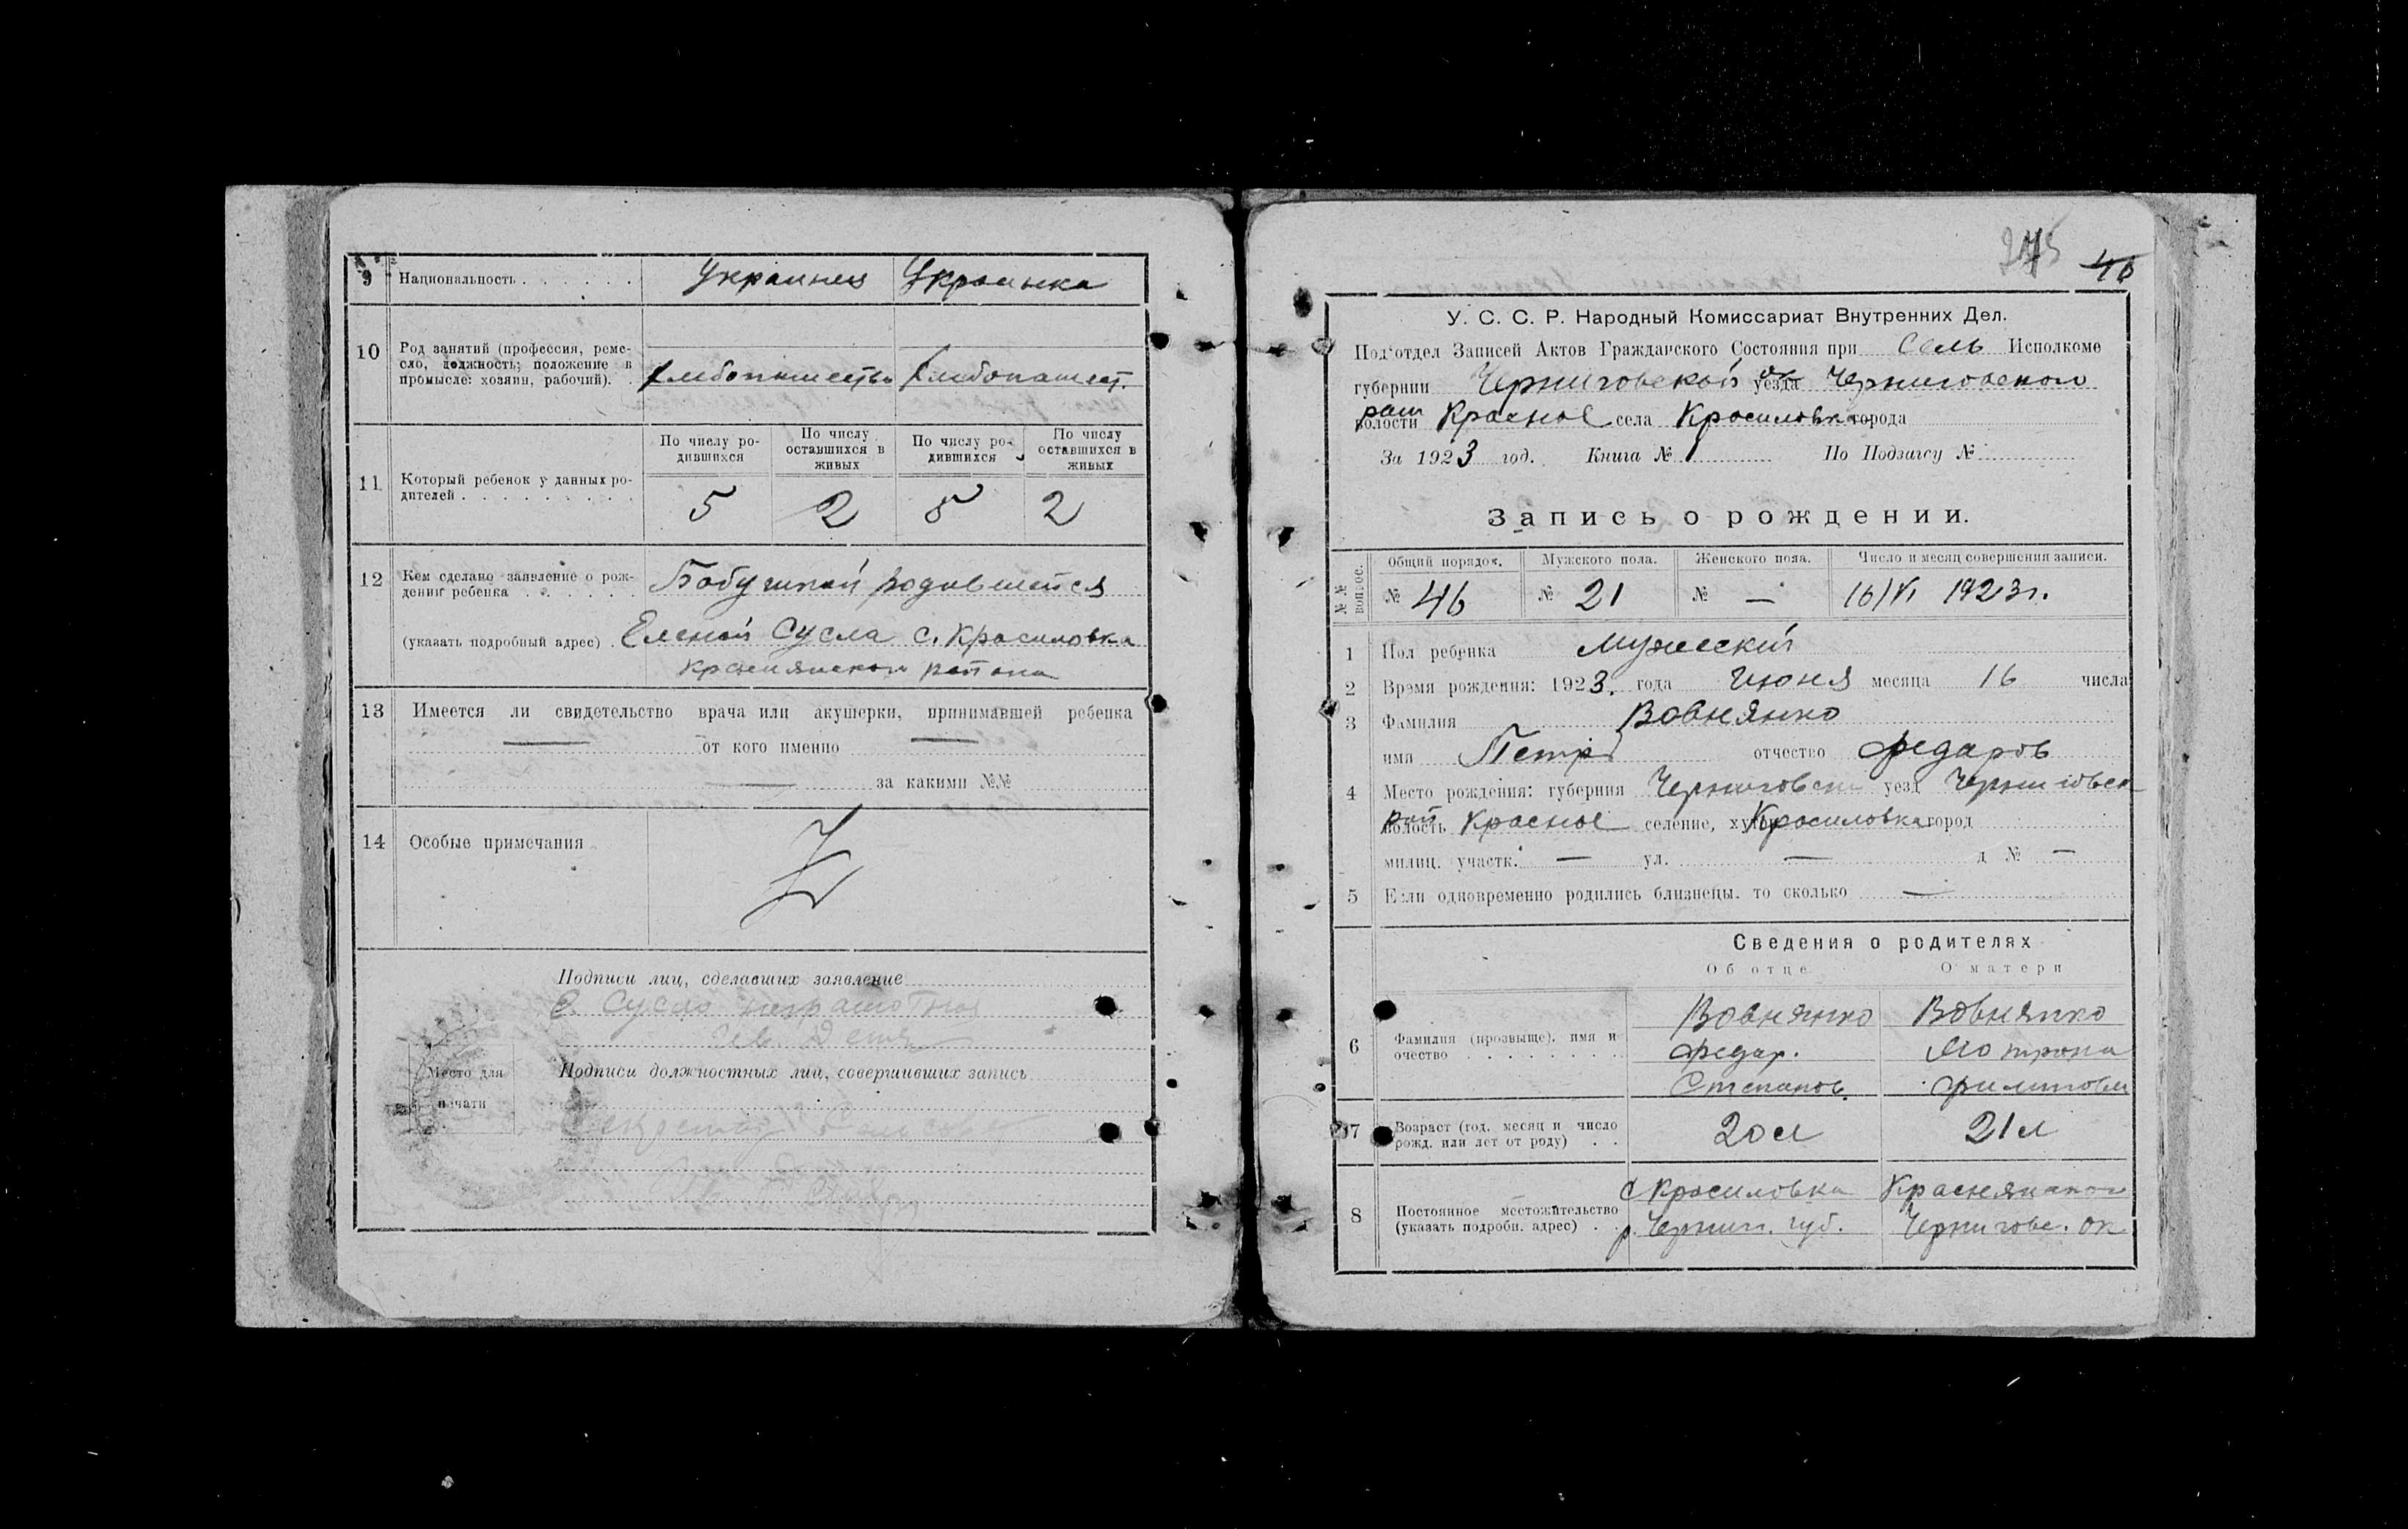 9 Национальность . . . . . . Украинец Украинка
10 Род занятий (профессия, реме-
сло, должность; положение в
промысле: хозяин, рабочий). . Хлибопашество Хлибопашест.
11 Который ребенок у данных ро-
дителей . . . . . . . . .
По числу ро-
дившихся
По числу
оставшихся в
живых
По числу ро-
дившихся
По числу
оставшихся в
живых
5 2 5 2
12 Кем сделано заявление о рож-
дении ребенка . . . . . . Бабушкой родившегося
(указать подробный адрес) . Еленой Сусла с. Красиловка
Краснянского района
13 Имеется ли свидетельство врача или акушерки, принимавшей ребенка
— от кого именно —
— за какими №№
14 Особые примечания
Подписи лиц, сделавших заявление
Е Сусло неграмотная
Место для
печати
Подписи должностных лиц, совершивших запись
275 46
У. С. С. Р. Народный Комиссариат Внутренних Дел.
Под'отдел Записей Актов Гражданского Состояния при Сель Исполкоме
губернии Черниговской уезда ок Черниговского
волости рай Красное села Красиловка города
За 1923 год. Книга № 1 По Подзагсу №
Запись о рождении.
№№ вопрос.
Общий порядок. Мужского пола. Женского пола. Число и месяц совершения записи.
№ 46 № 21 № — 16/VI 1923г.
1 Пол ребенка Мужеский
2 Время рождения: 1923. года Июня месяца 16 числа
3 Фамилия Вовнянко
имя Петр отчество Федаров
4 Место рождения: губерния Черниговск уезд Черниговск
волость рай Красное селение, хутор Красиловка город
милиц. участк. — ул. — д № —
5 Если одновременно родились близнецы. то сколько —
Сведения о родителях
Об отце О матери
6 Фамилия (прозвыще). имя и
очество . . . . . . . .
Вовнянко Вовнянко
Федар. Мотрона
Степанов. Филипова
7 Возраст (год. месяц и число
рожд. или лет от роду) . . 20 л 21 л
8 Постоянное местожительство
(указать подробн. адрес) . .
с Красиловка Краснянского
р. Черниг. губ. Черниговс. ок